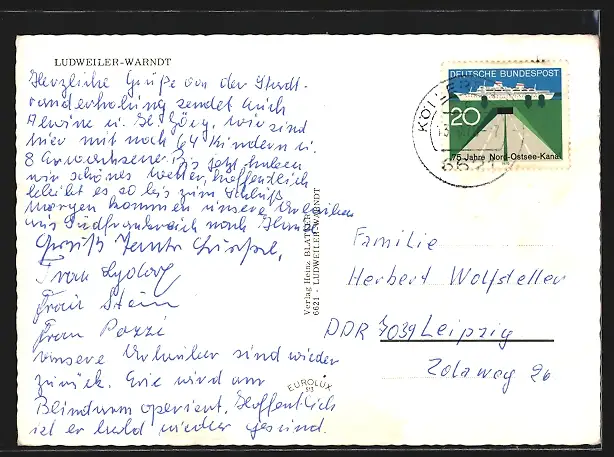 LUDWEILER-WARNDT
Herzliche Grüße von der Stadt-
randerholung sendet Euch
Alwine u. Georg, wir sind
hier mit noch 64 Kindern u.
8 Erwachsene. Bis jetzt haben
wir schönes Wetter, hoffentlich
bleibt es so bis zum Schluß
morgen kommen unsere Urlauber
aus Südfrankreich nach
Gruß
Frau
Frau Stein
Frau Pozzi
unsere Urlauber sind wieder
zurück. wird am
Blinddarm operiert. Hoffentlich
ist er bald wieder gesund.
Verlag Heinz BLATTER
6621 - LUDWEILER-WARNDT
EUROLUX
DEUTSCHE BUNDESPOST
20
75 Jahre Nord-Ostsee-Kanal
Familie
Herbert Wolfsteller
DDR 7039 Leipzig
Zolaweg 26